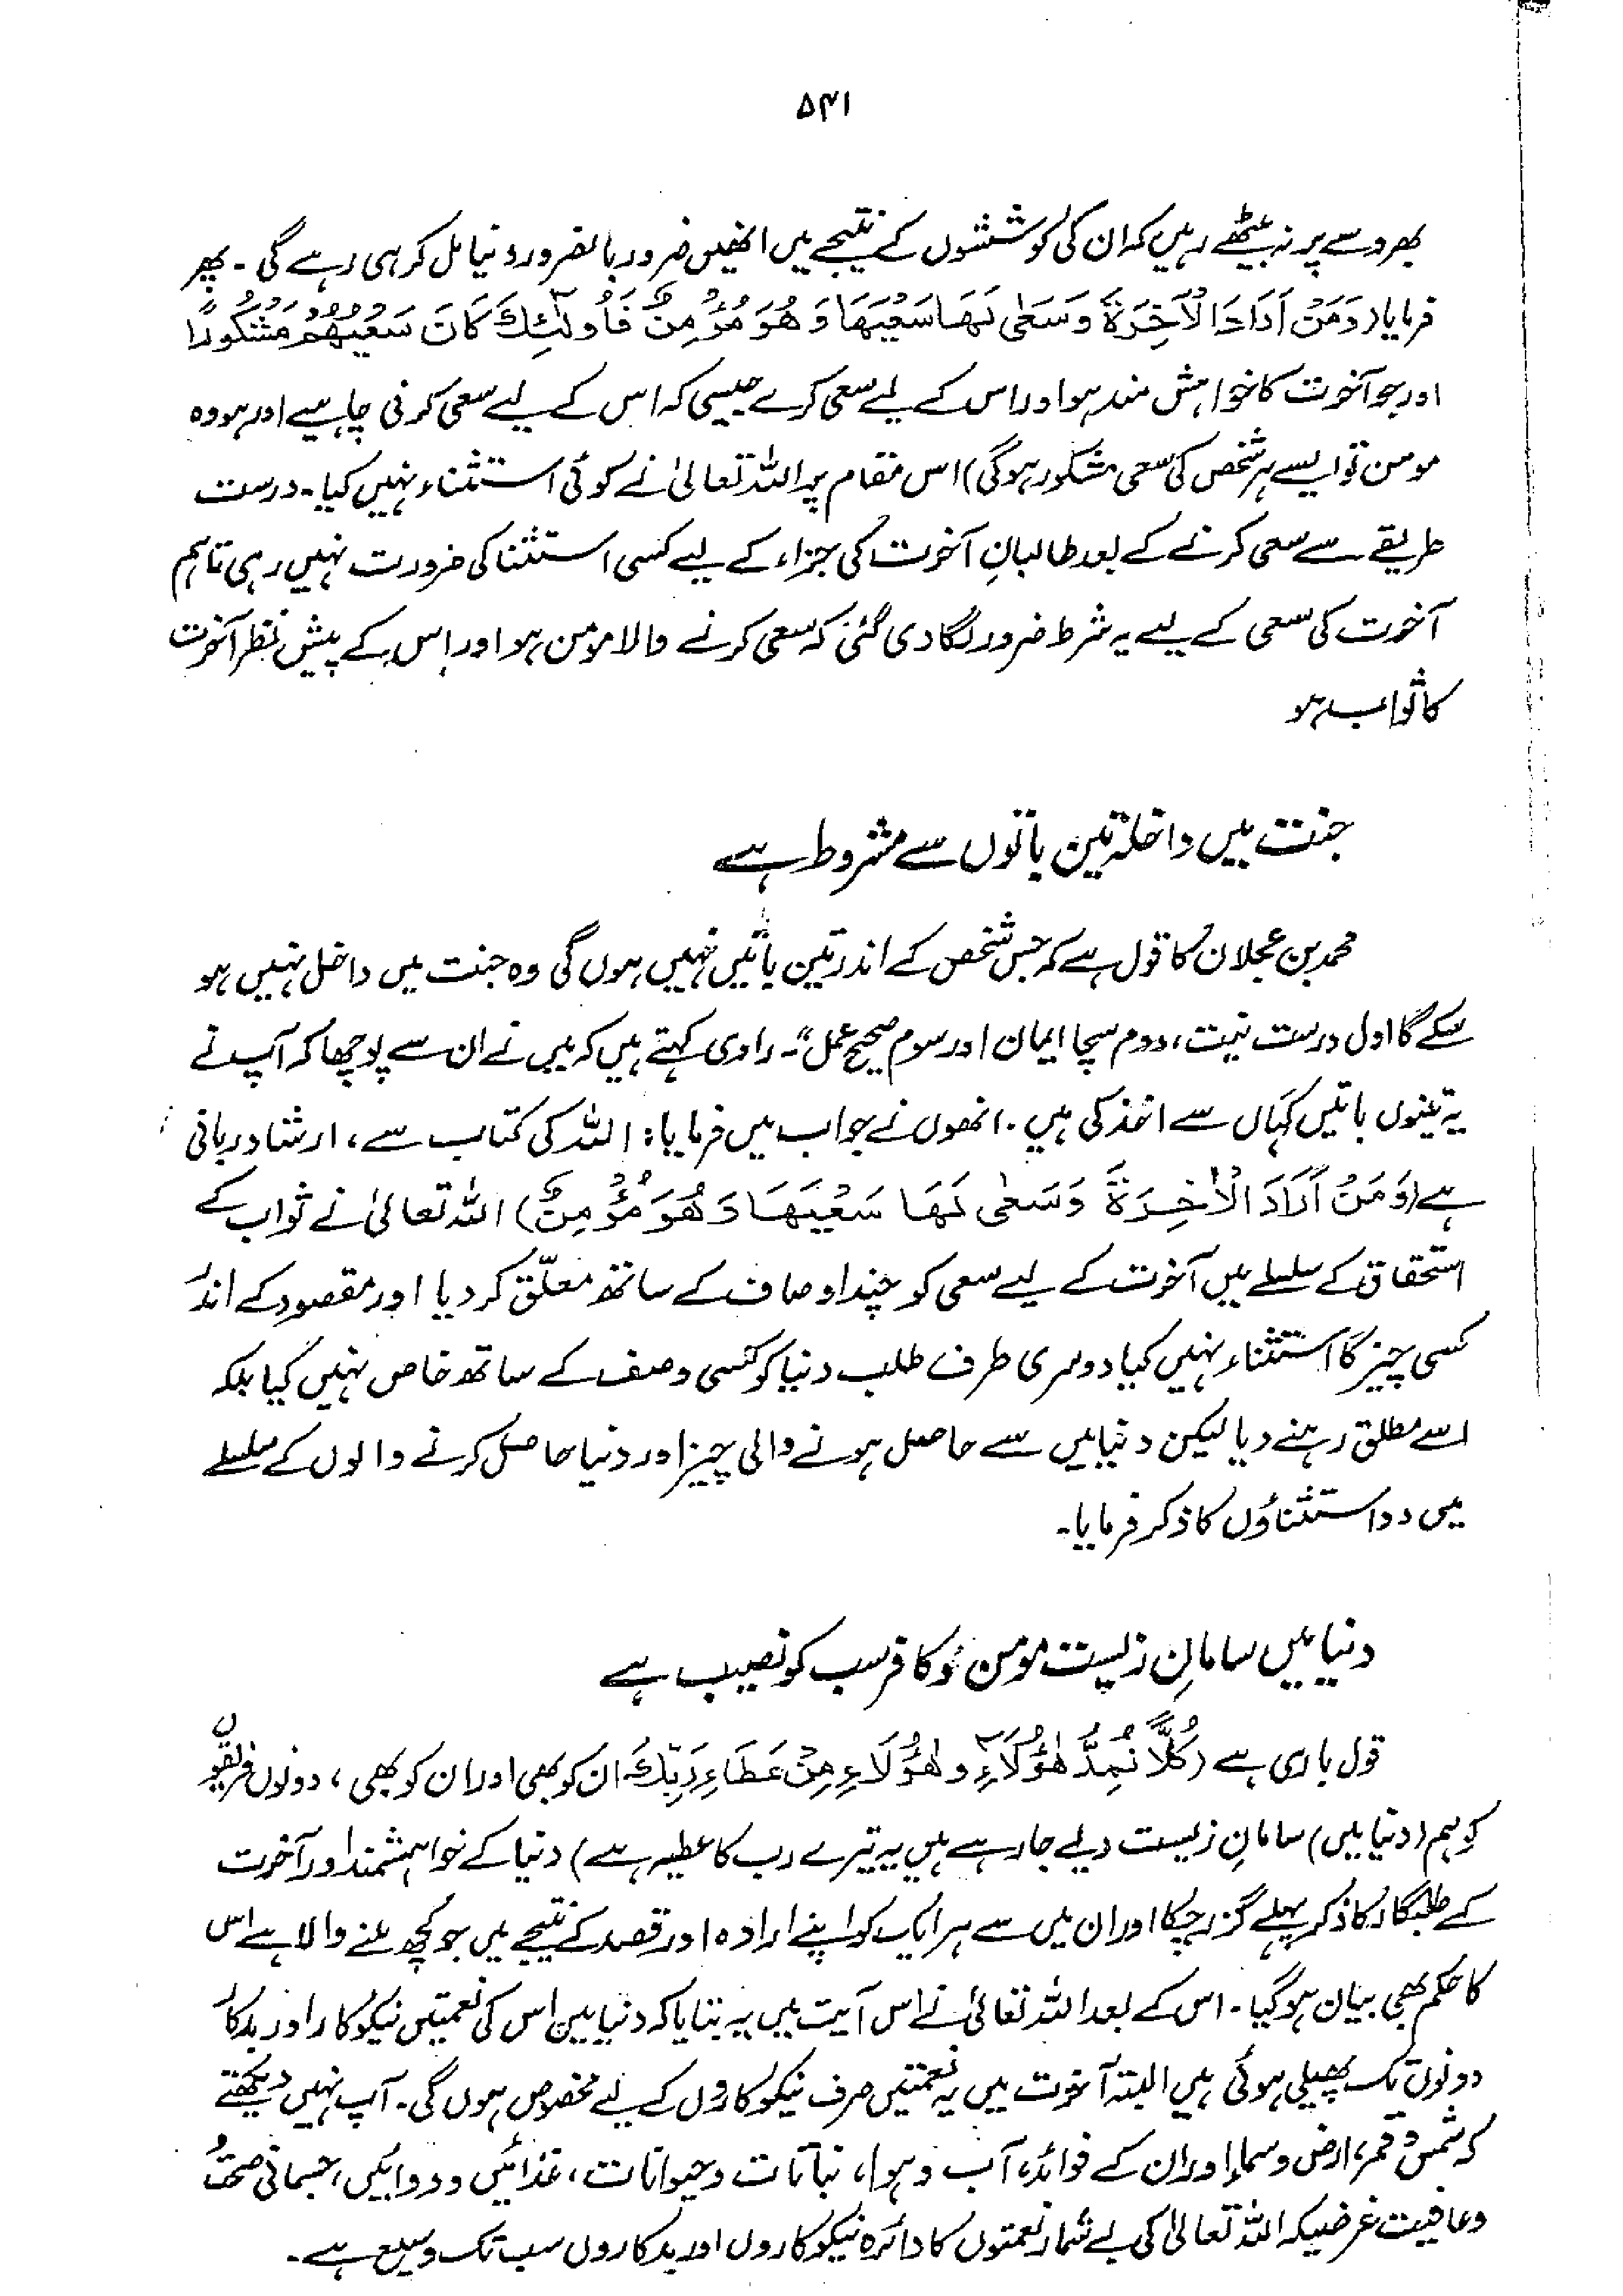 ۵۴۱
بھروسے پر نہ بیٹھے رہیں کہ ان کی کوششوں کے نتیجے میں انھیں ضرور بالضرور دنیا مل کر ہی رہے گی ۔ پھر
فرمایا (وَمَنْ اَرَادَ الْاٰخِرَةَ وَسَعٰى لَهَا سَعْيَهَا وَهُوَ مُؤْمِنٌ فَاُولٰٓئِكَ كَانَ سَعْيُهُمْ مَشْكُورًا
اور جو آخرت کا خواہش مند ہو اور اس کے لیے سعی کرے جیسی کہ اس کے لیے سعی کرنی چاہیے اور ہو وہ
مومن تو ایسے ہر شخص کی سعی مشکور ہوگی) اس مقام پر اللہ تعالیٰ نے کوئی استثناء نہیں کیا۔ درست
طریقے سے سعی کرنے کے بعد طالبانِ آخرت کی جزاء کے لیے کسی استثنا کی ضرورت نہیں رہی تاہم
آخرت کی سعی کے لیے یہ شرط ضرور لگا دی گئی کہ سعی کرنے والا مومن ہو اور اس کے پیش نظر آخرت
کا ثواب ہو
جنت میں داخلہ تین باتوں سے مشروط ہے
محمد بن عجلان کا قول ہے کہ جس شخص کے اندر تین باتیں نہیں ہوں گی وہ جنت میں داخل نہیں ہو
سکے گا اول درست نیت، دوم سچا ایمان اور سوم صحیح عمل"۔ راوی کہتے ہیں کہ میں نے ان سے پوچھا کہ آپ نے
یہ تینوں باتیں کہاں سے اخذ کی ہیں ۔ انھوں نے جواب میں فرمایا: اللہ کی کتاب سے، ارشاد ربانی
ہے (وَمَنْ اَرَادَ الْاٰخِرَةَ وَسَعٰى لَهَا سَعْيَهَا وَهُوَ مُؤْمِنٌ) اللہ تعالیٰ نے ثواب کے
استحقاق کے سلسلے میں آخرت کے لیے سعی کو چند اوصاف کے ساتھ معلّق کر دیا اور مقصود کے اندر
کسی چیز کا استثناء نہیں کیا دوسری طرف طلب دنیا کو کسی وصف کے ساتھ خاص نہیں کیا بلکہ
اسے مطلق رہنے دیا لیکن دنیا میں سے حاصل ہونے والی چیز اور دنیا حاصل کرنے والوں کے سلسلے
میں دو استثناؤں کا ذکر فرمایا۔
دنیا میں سامانِ زیست مومن و کافر سب کو نصیب ہے
قول باری ہے (كُلًّا نُمِدُّ هٰٓؤُلَآءِ وَهٰٓؤُلَاءِ مِنْ عَطَاءِ رَبِّكَ ان کو بھی اور ان کو بھی، دونوں فریقوں
کو ہم (دنیا میں) سامانِ زیست دیے جا رہے ہیں یہ تیرے رب کا عطیہ ہے) دنیا کے خواہشمند اور آخرت
کے طلبگار کا ذکر پہلے گزر چکا اور ان میں سے ہر ایک کو اپنے ارادہ اور قصد کے نتیجے میں جو کچھ ملنے والا ہے اس
کا حکم بھی بیان ہو گیا ۔ اس کے بعد اللہ تعالیٰ نے اس آیت میں یہ بتایا کہ دنیا میں اس کی نعمتیں نیکوکار اور بدکار
دونوں تک پھیلی ہوئی ہیں البتہ آخرت میں یہ نعمتیں صرف نیکوکاروں کے لیے مخصوص ہوں گی۔ آپ نہیں دیکھتے
کہ شمس و قمر، ارض و سماء اور ان کے فوائد، آب و ہوا، نباتات و حیوانات، غذائیں و دوائیں، جسمانی صحت
و عافیت غرضیکہ اللہ تعالیٰ کی بے شمار نعمتوں کا دائرہ نیکوکاروں اور بدکاروں سب تک وسیع ہے۔